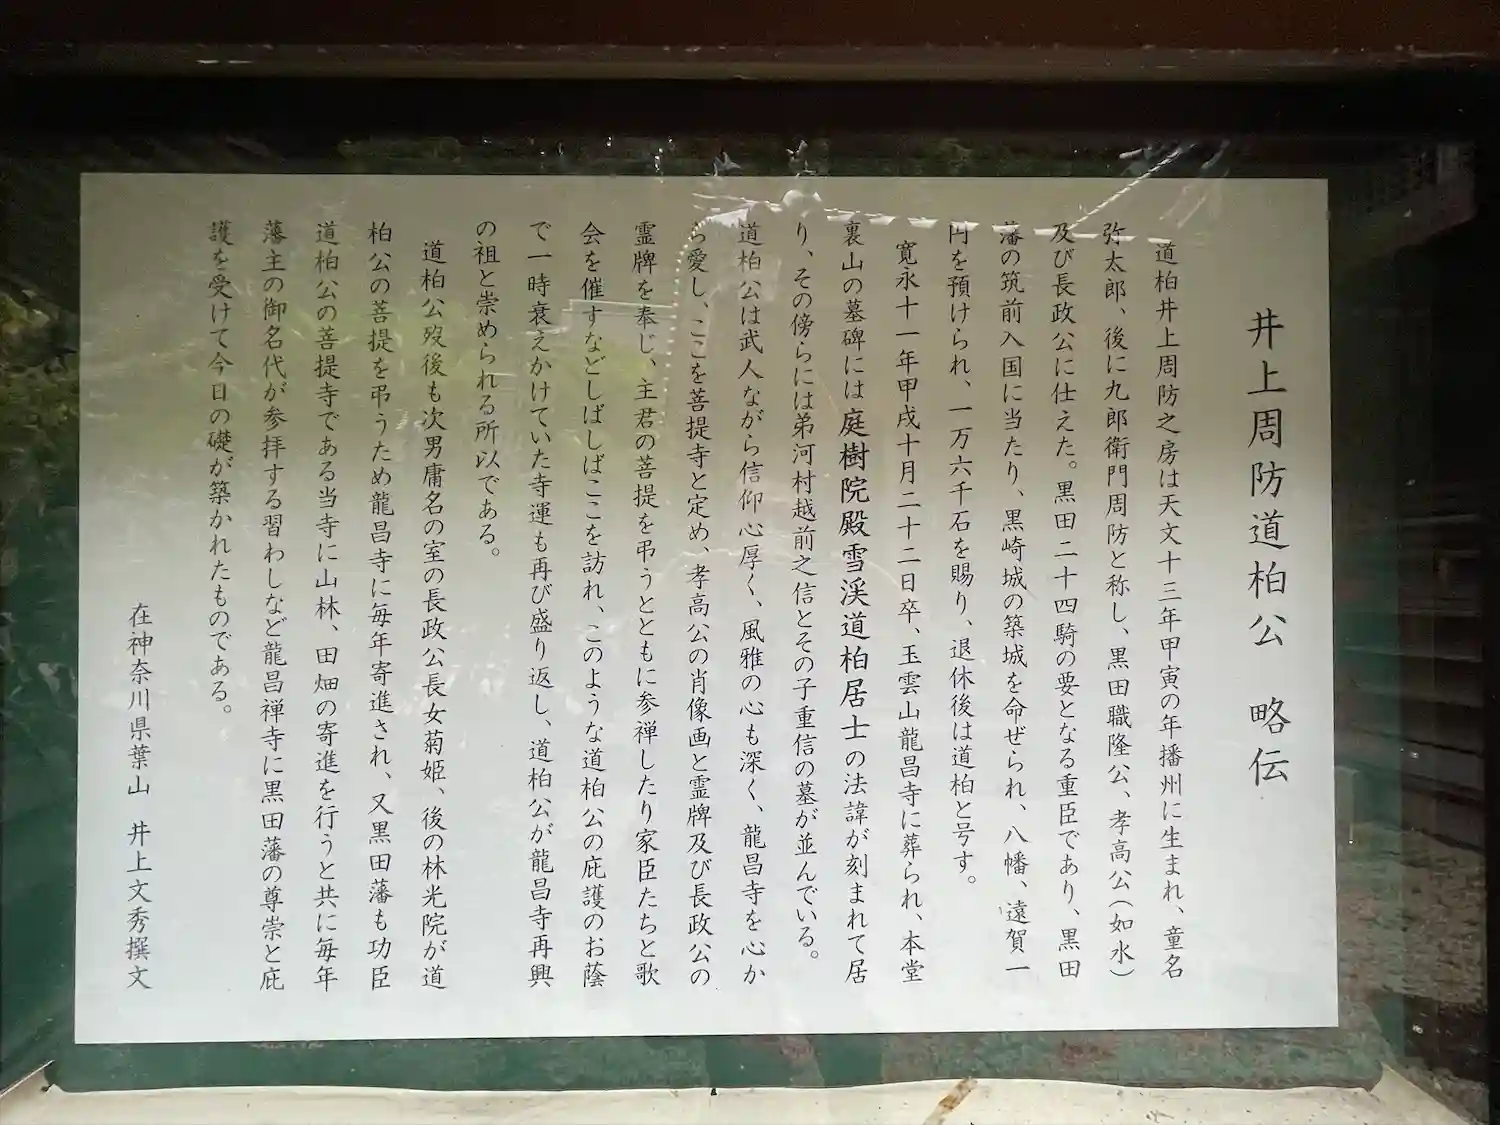 井上周防道柏公　略伝
道柏井上周防之房は天文十三年甲寅の年播州に生まれ、童名
弥太郎、後に九郎衛門周防と称し、黒田職隆公、孝高公（如水）
及び長政公に仕えた。黒田二十四騎の要となる重臣であり、黒田
藩の筑前入国に当たり、黒崎城の築城を命ぜられ、八幡、遠賀一
円を預けられ、一万六千石を賜り、退休後は道柏と号す。
寛永十一年甲戌十月二十二日卒、玉雲山龍昌寺に葬られ、本堂
裏山の墓碑には庭樹院殿雪渓道柏居士の法諱が刻まれて居
り、その傍らには弟河村越前之信とその子重信の墓が並んでいる。
道柏公は武人ながら信仰心厚く、風雅の心も深く、龍昌寺を心か
ら愛し、ここを菩提寺と定め、孝高公の肖像画と霊牌及び長政公の
霊牌を奉じ、主君の菩提を弔うとともに参禅したり家臣たちと歌
会を催すなどしばしばここを訪れ、このような道柏公の庇護のお蔭
で一時衰えかけていた寺運も再び盛り返し、道柏公が龍昌寺再興
の祖と崇められる所以である。
道柏公歿後も次男庸名の室の長政公長女菊姫、後の林光院が道
柏公の菩提を弔うため龍昌寺に毎年寄進され、又黒田藩も功臣
道柏公の菩提寺である当寺に山林、田畑の寄進を行うと共に毎年
藩主の御名代が参拝する習わしなど龍昌禅寺に黒田藩の尊崇と庇
護を受けて今日の礎が築かれたものである。
在神奈川県葉山　井上文秀撰文